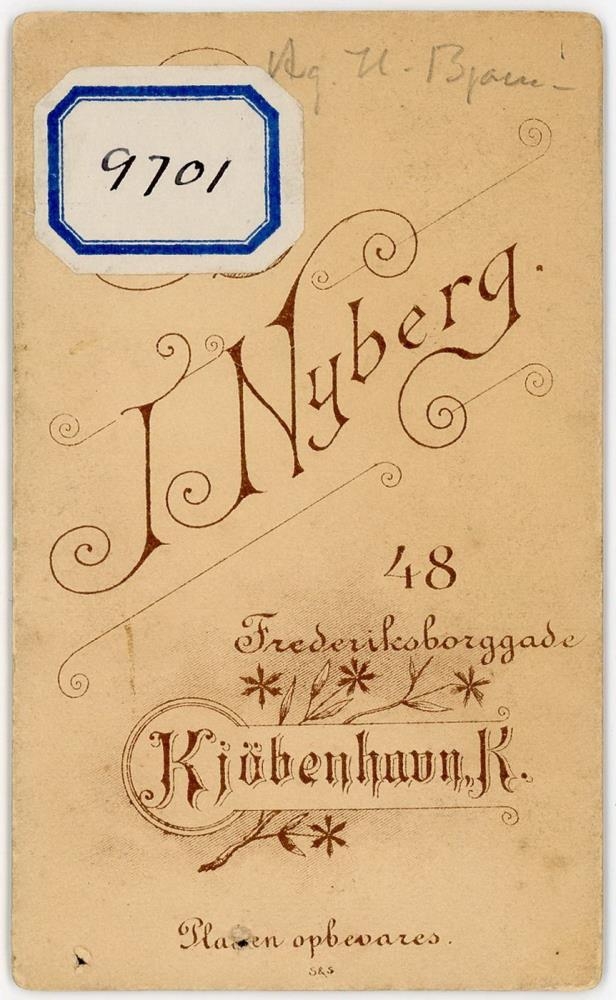 9701
J. Nyberg.
48
Frederiksborggade
Kjöbenhavn, K.
Pladen opbevares.
S&S